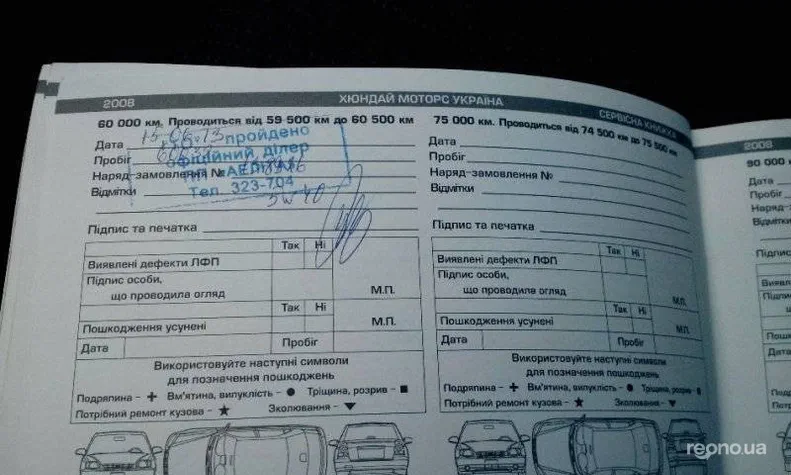 2008 ХЮНДАЙ МОТОРС УКРАЇНА
СЕРВІСНА КНИЖКА
60 000 км. Проводиться від 59 500 км до 60 500 км
Дата 15.06.13
Пробіг
Наряд-замовлення №
Відмітки
5w40
пройдено
офіційний ділер
Тел. 323-704
Підпис та печатка
Так Ні
Виявлені дефекти ЛФП
Підпис особи,
що проводила огляд
М.П.
Так Ні
Пошкодження усунені
М.П.
Дата Пробіг
Використовуйте наступні символи
для позначення пошкоджень
Подряпина - + Вм'ятина, випуклість - ● Тріщина, розрив - ■
Потрібний ремонт кузова - ★ Зколювання - ▼
75 000 км. Проводиться від 74 500 км до 75 500 км
Дата
Пробіг
Наряд-замовлення №
Відмітки
Підпис та печатка
Так Ні
Виявлені дефекти ЛФП
Підпис особи,
що проводила огляд
М.П.
Так Ні
Пошкодження усунені
М.П.
Дата Пробіг
Використовуйте наступні символи
для позначення пошкоджень
Подряпина - + Вм'ятина, випуклість - ● Тріщина, розрив - ■
Потрібний ремонт кузова - ★ Зколювання - ▼
2008
90 000
Дата
Пробіг
Наряд-
Відмітки
Підпис
Виявлені
Підпис
Пошкод
Дата
repno.ua